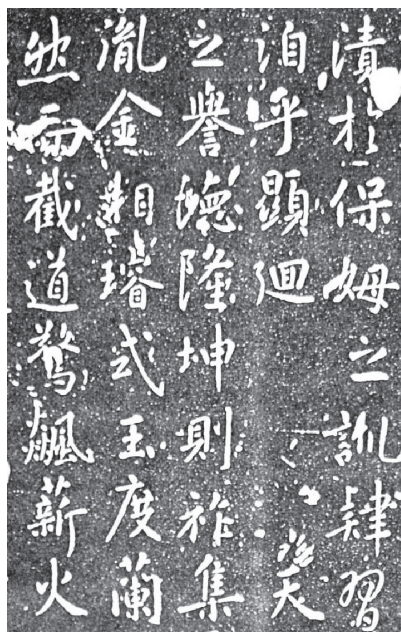 漬於保姆之訓肄習
洎乎顯迴俔天
之譽德隆坤則祚集
胤金相璿式玉度蘭
然而截道驚飆薪火